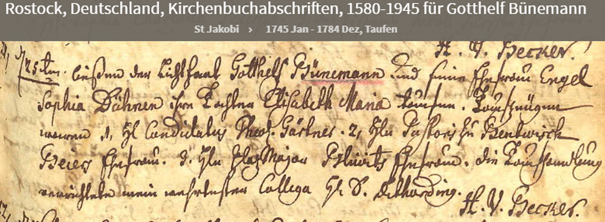 Rostock, Deutschland, Kirchenbuchabschriften, 1580-1945 für Gotthelf Bünemann
St Jakobi › 1745 Jan - 1784 Dez, Taufen
H. V. Becker.
ließen der Gotthelf Bünemann und seine Ehefrau Engel
Sophia Dähnen ihre Tochter Elisabeth Maria taufen. Taufzeugen
waren 1, Hl Candidatus Theol. Gärtner. 2, Hln Pastoris zu Bentwisch
Ehefrau. 3. Hln Major Ehefrau. die Taufhandlung
verrichtete mein Collega Hl. D.
H. V. Becker.